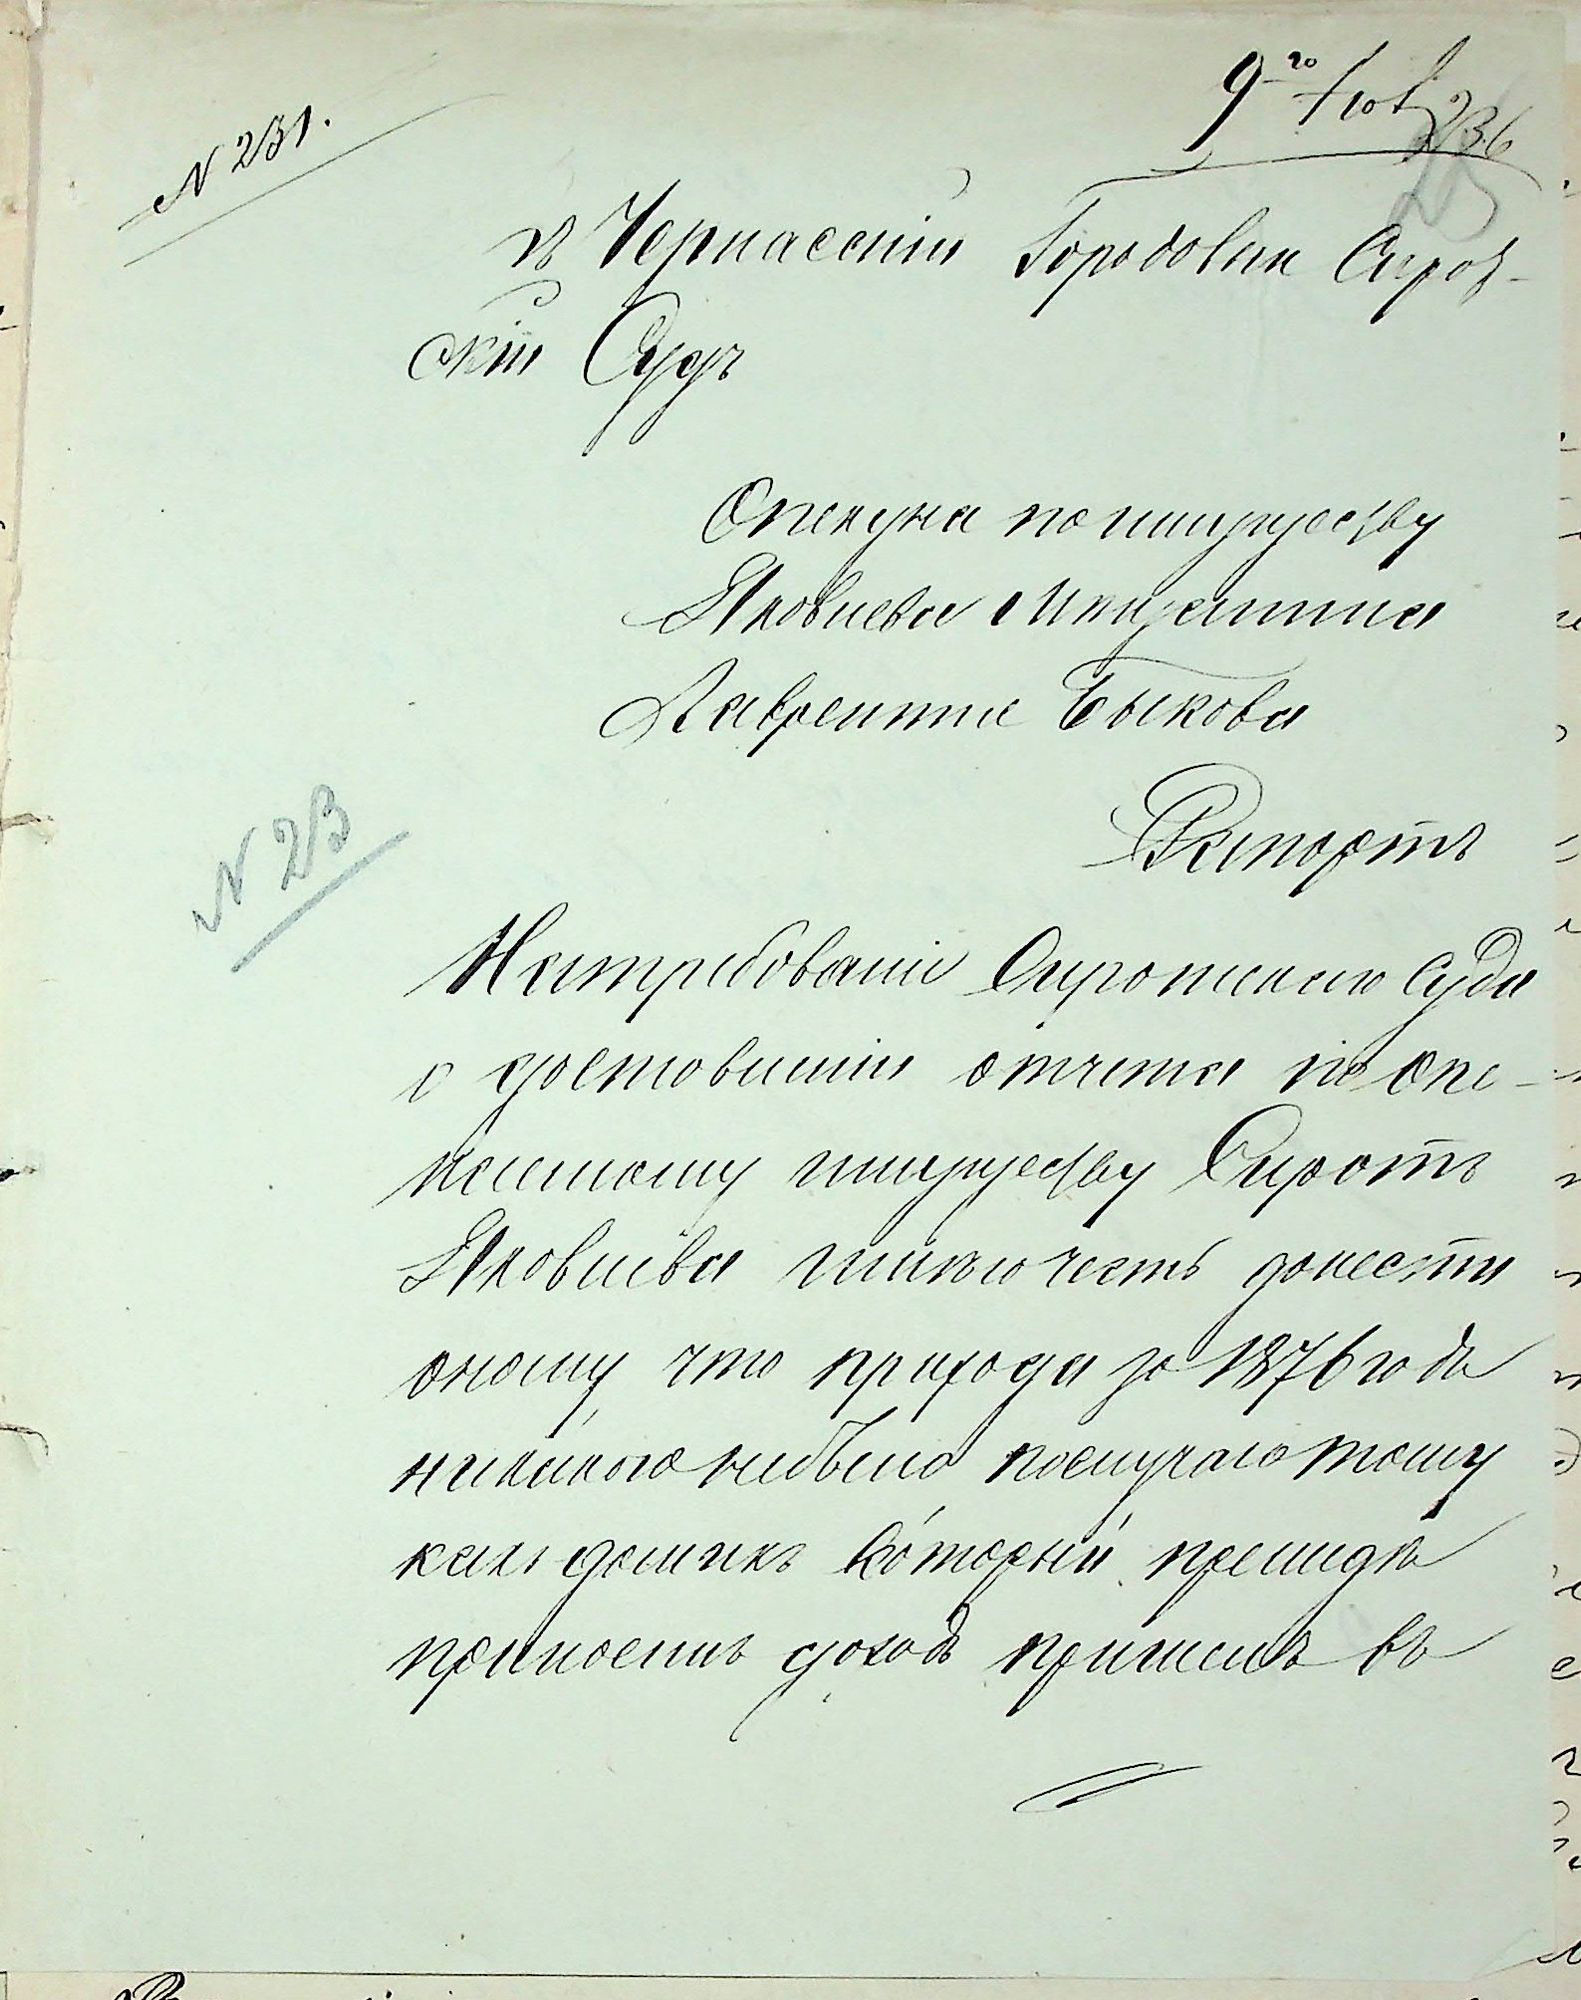 N 231.
9го Іюл
236
25
въ Черкасскій Городовый Сирот-
скій Судъ
Опекуна по имуществу
Яковлева Мещанина
Лаврентія Быкова
Рапортъ
N 23
Натребованіе Сиротскаго Суда
о доставленіи отчета по опе-
каемому имуществу Сиротъ
Яковлева имѣю честь донести
оному что прихода за 1876 годъ
никакого небыло послучаю тому
какъ домикъ который прежде
приносилъ доходъ пришелъ въ